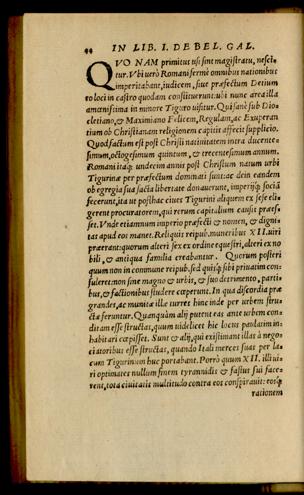 44 IN LIB. I. DE BEL. GAL.
QVO NAM primitus usi sint magistratu, nesci-
tur. Vbi uerò Romani fermè omnibus nationibus
imperitabant, iudicem, siue præfectum Decium
eo loci in castro quodam constituerunt: ubi nunc area illa
amœnissima in minore Tiguro uisitur. Qui sanè sub Dio-
cletiano, & Maximiano Felicem, Regulam, ac Exuperan
tium ob Christianam religionem capitis affecit supplicio.
Quod factum est post Christi natiuitatem inera ducente-
simum, octogesimum quintum, & trecentesimum annum.
Romani itaque undecim annis post Christum natum urbi
Tigurinæ per præfectum dominati sunt: ac dein eandem
ob egregia sua facta libertate donauerunt, imperijque sociā
fecerunt, ita ut posthac ciues Tigurini aliquem ex sese eli-
gerent procuratorem, qui rerum capitalium causis præes-
set. Vnde etiamnum imperio præfecti & nomen, & digni-
tas apud eos manet. Reliquis reipub. muneribus XII. uiri
præerant: quorum alteri sex ex ordine equestri, alteri ex no
bili, & antiqua familia creabantur. Quorum posteri
quum non in commune reipub. sed quisque sibi priuatim con-
suleret: non sine magno & urbis, & suo detrimento, parti-
bus, & factionibus studere cœperunt. In qua discordia præ
grandes, ac munitæ illæ turres hinc inde per urbem stru-
ctæ feruntur. Quanquàm alij putent eas ante urbem con-
ditam esse structas, quum uidelicet hic locus paulatim in-
habitari cœpisset. Sunt & alij, qui existimant illas à nego-
ciatoribus esse structas, quando Itali merces suas per la-
cum Tigurinum huc portabant. Porrò quum XII. illi ui-
ri optimates nullum finem tyrannidis & fastus sui face-
rent, tota ciuitatis multitudo contra eos conspirauit: eosque
rationem